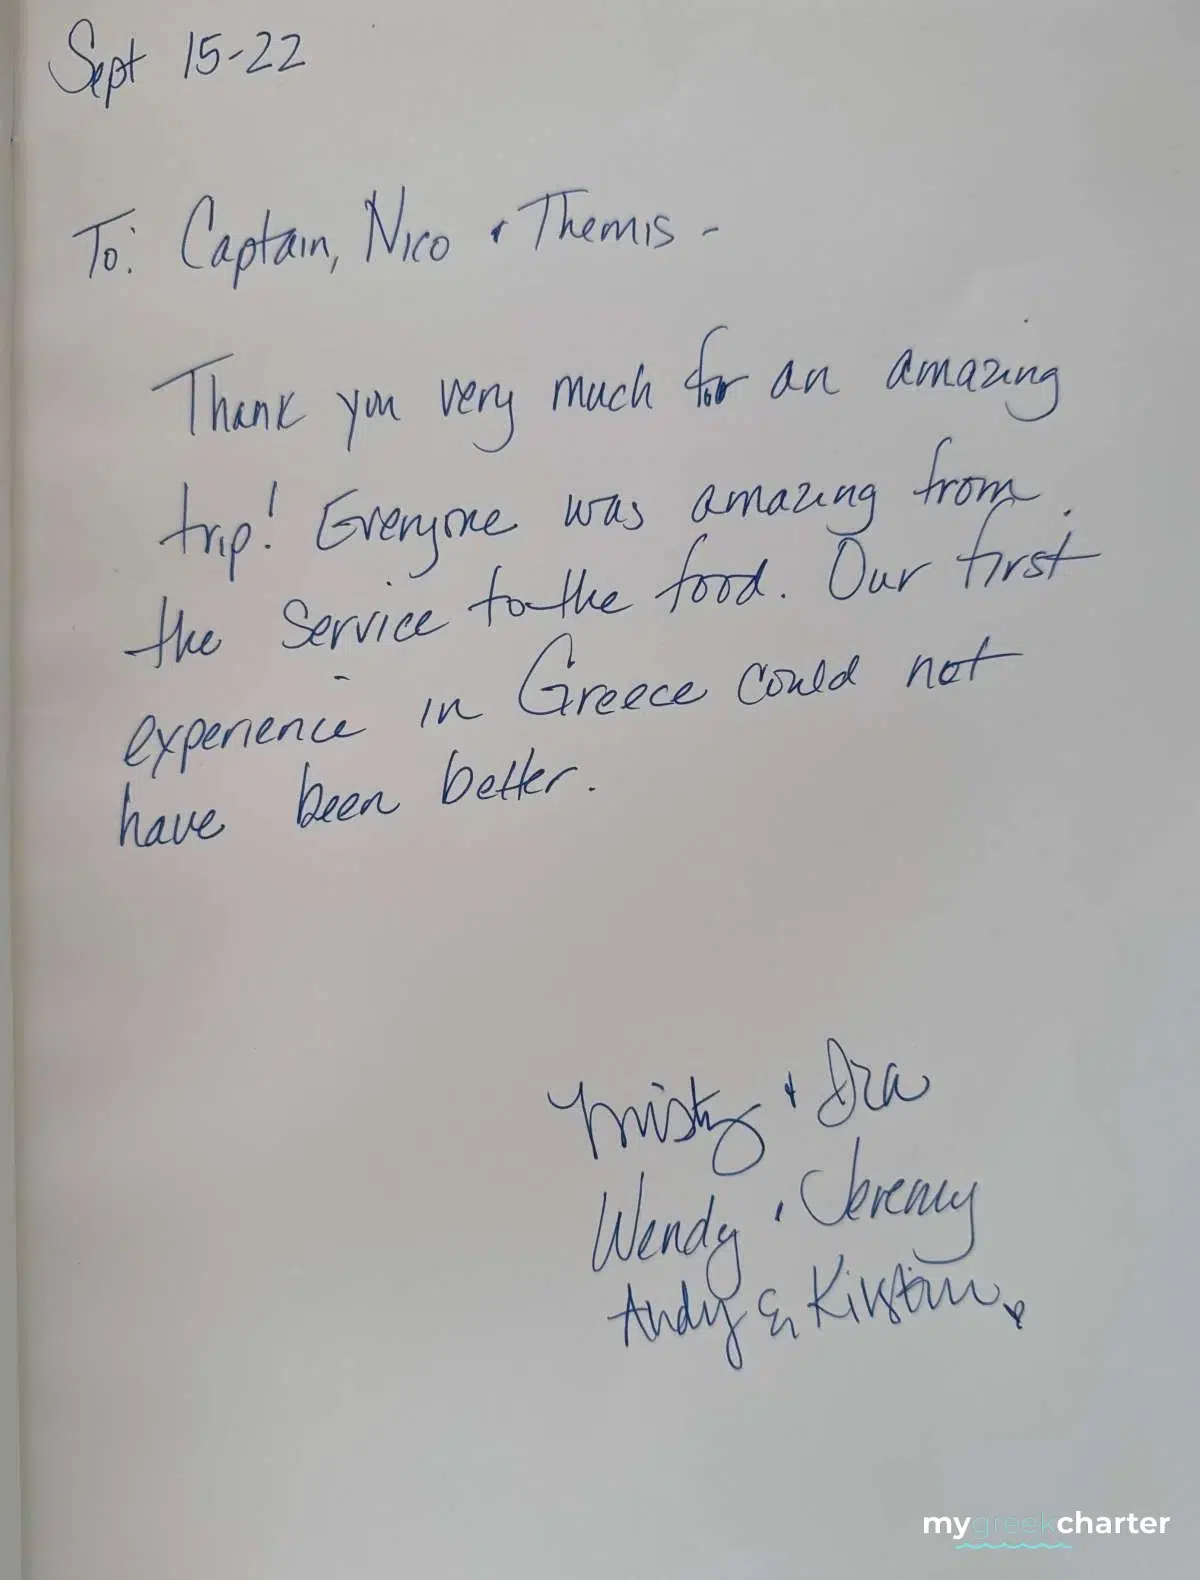 Sept 15-22
To: Captain, Nico & Themis -
Thank you very much for an amazing
trip! Everyone was amazing from
the service to the food. Our first
experience in Greece could not
have been better.
Misty & Ira
Wendy & Jeremy
Andy & Kirstin
mygreekcharter